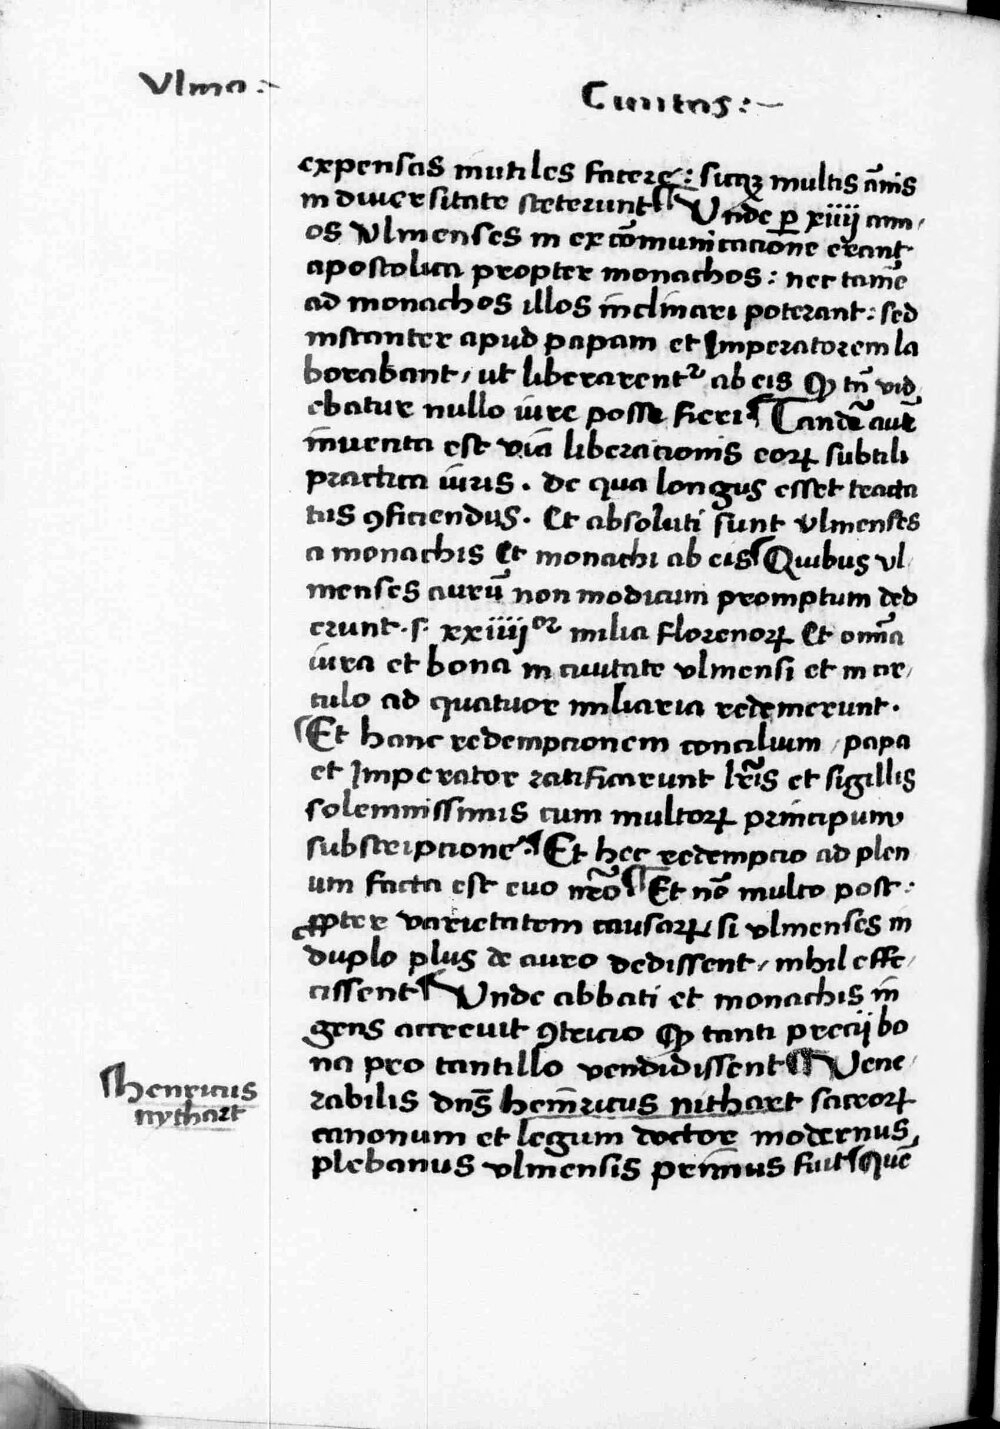 Vlma :~
Ciuitas :~
expensas inutiles facere : sicq3 multis an̄is
in diuersitate steterunt ¶ Vnde ꝑ xiiij ann,
os Vlmenses in excōmunicatione erant
apostolica propter monachos : nec tamē
ad monachos illos inclinari poterant : sed
instanter apud papam et Imperatorem la
borabant, ut liberarentr ab eis Qꝫ tn̄ vid,
ebatur nullo iure posse fieri ¶ Tandē autē
inuenta est via liberationis eorꝝ subtili
practica iuris . de qua longus esset tracta
tus ꝯficiendus . Et absoluti sunt vlmenses
a monachis Et monachi ab eis ¶ Quibus vl,
menses aurū non modicum promptum ded
erunt . s. xxiiijor milia florenorꝝ Et om̄ia
iura et bona in ciuitate vlmensi et in cir,
culo ad quatuor miliaria redemerunt .
¶ Et hanc redempcionem concilium , papa
et Imperator ratificarunt lr̄is et sigillis
solemnissimis cum multorꝝ principum
subscripcione . ¶ Et hec redempcio ad plen
um facta est euo nr̄o ¶ Et nō multo post :
ꝓpter varietatem causarꝝ, si vlmenses in
duplo plus de auro dedissent , nihil effe,
cissent ¶ Vnde abbati et monachis in
gens accreuit ꝯtricio Qꝫ tanti precij bo
na pro tantillo vendidissent ¶ Vene,
rabilis dn̄s heinricus nithart sacrorꝝ
canonum et legum doctor modernus,
plebanus vlmensis primus fuit ¶ Quē
¶ henricus
nythart